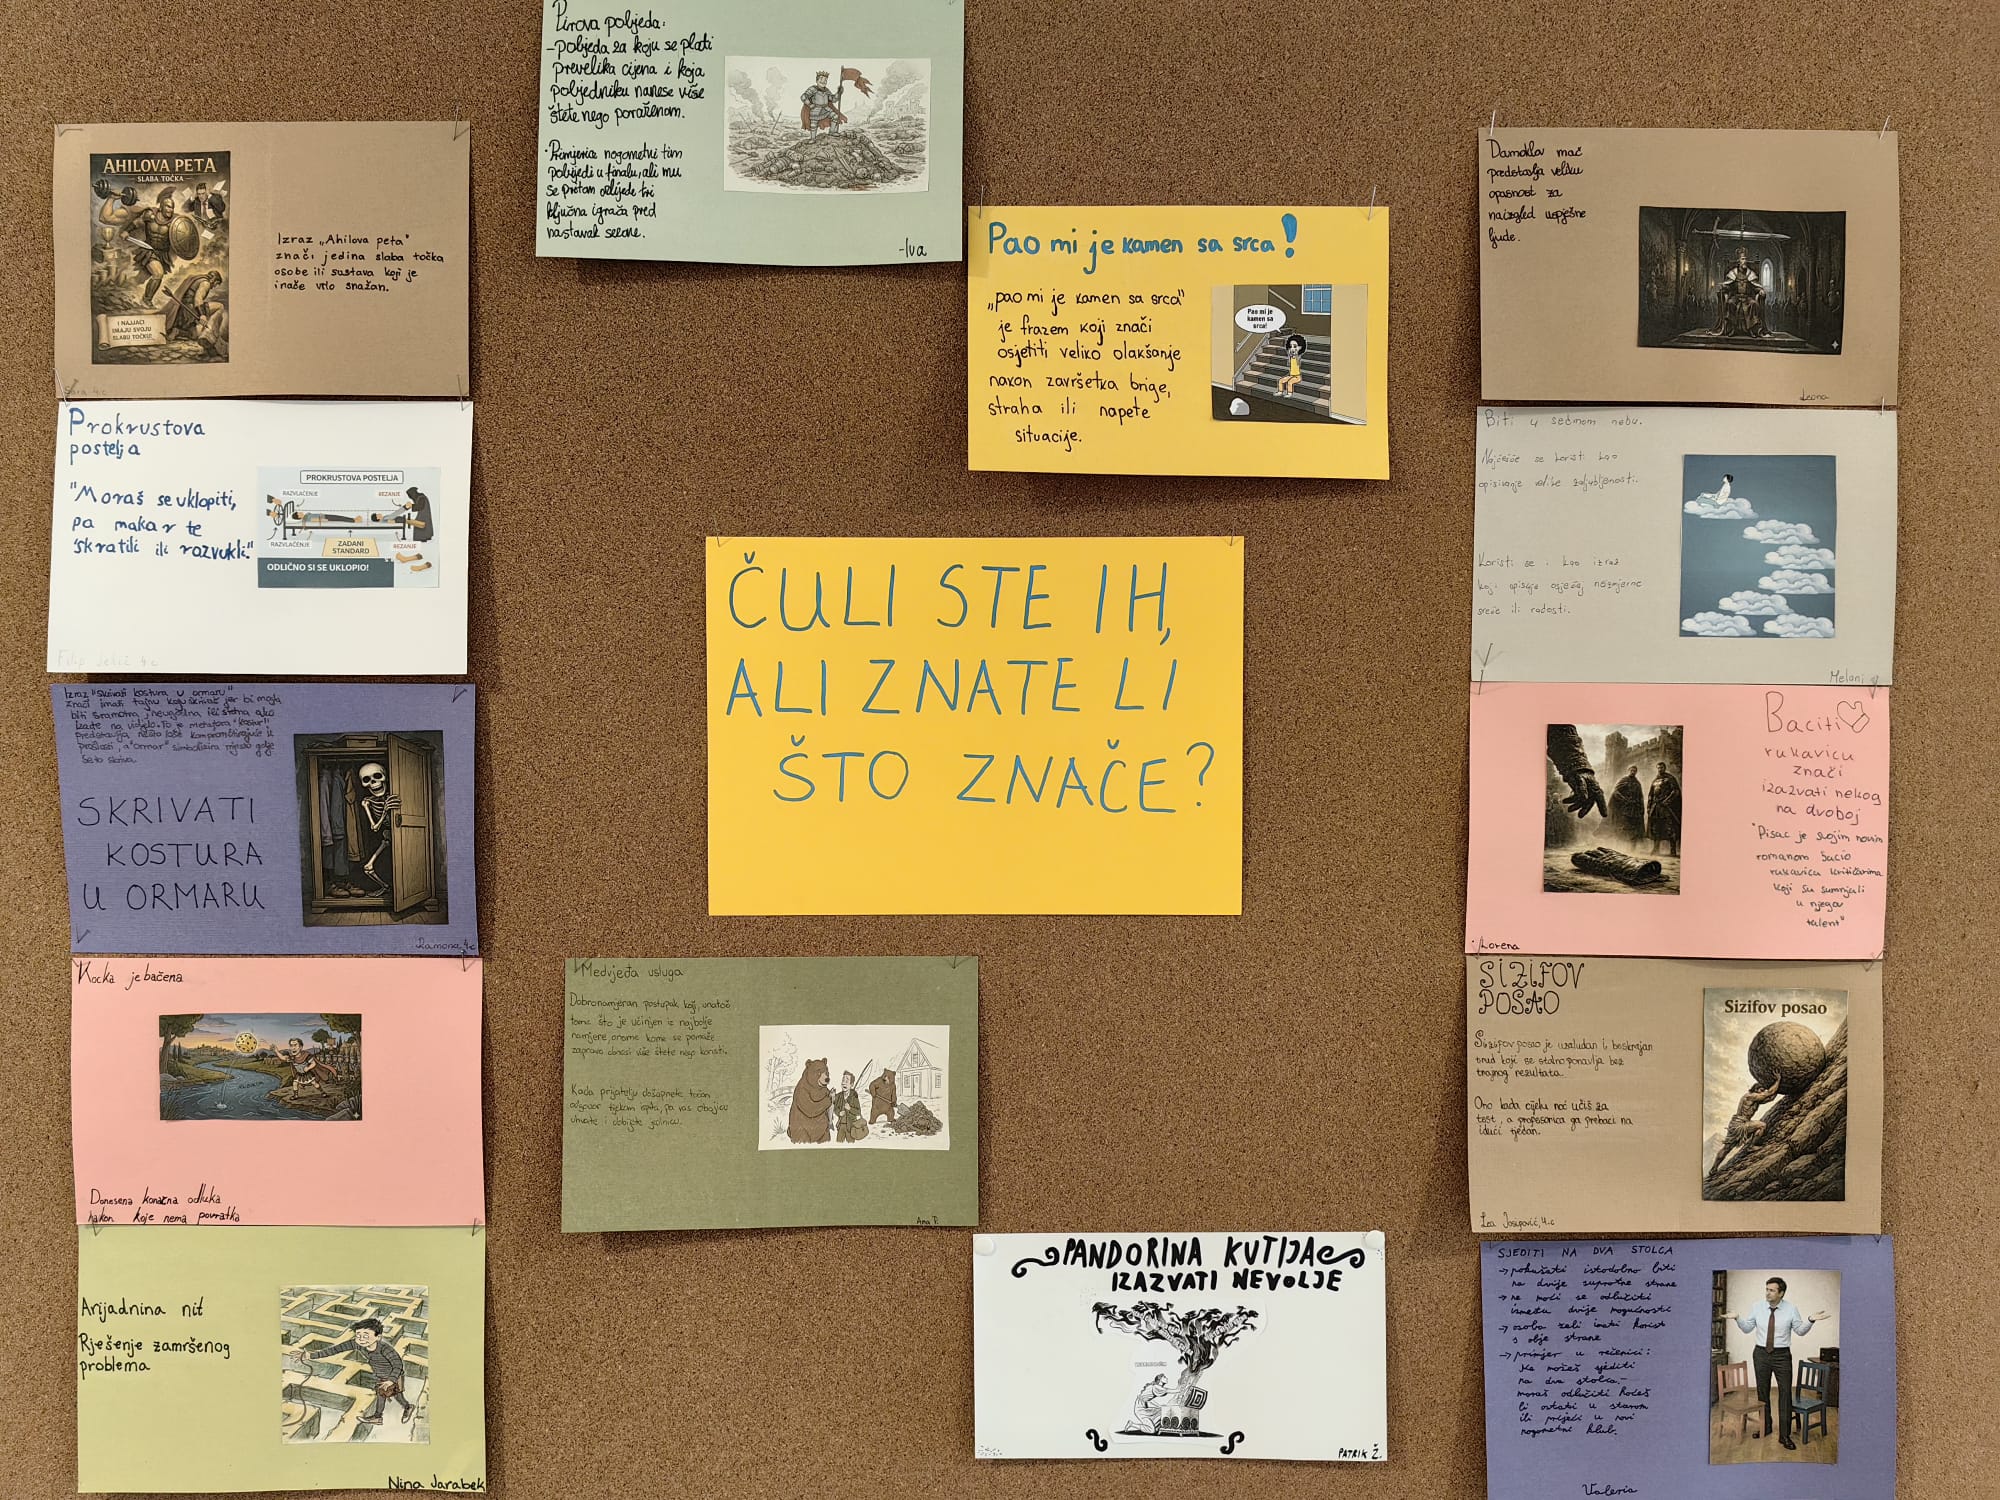 Pirova pobjeda:
-pobjeda za koju se plati
prevelika cijena i koja
pobjedniku nanese više
štete nego poraženom.
Primjerice nogometni tim
pobijedi u finalu, ali mu
se pritom ozlijede tri
ključna igrača pred
nastavak sezone.
-Iva
AHILOVA PETA
SLABA TOČKA
I NAJJAČI
IMAJU SVOJU
SLABU TOČKU!
Izraz „Ahilova peta"
znači jedina slaba točka
osobe ili sustava koji je
inače vrlo snažan.
Sara 4.c
Prokrustova
postelja
"Moraš se uklopiti,
pa makar te
skratili ili razvukli."
PROKRUSTOVA POSTELJA
RAZVLAČENJE
REZANJE
RAZVLAČENJE
ZADANI
STANDARD
REZANJE
ODLIČNO SI SE UKLOPIO!
Filip Jelić 4.c
Izraz "skrivati kostura u ormaru"
znači imati tajnu koju skrivaš jer bi mogla
biti sramotna, neugodna ili štetna ako
izađe na vidjelo. To je metafora "kostur"
predstavlja nešto loše kompromitirajuće iz
prošlosti, a "ormar" simbolizira mjesto gdje
se to skriva.
SKRIVATI
KOSTURA
U ORMARU
Ramona 4.c
Kocka je bačena
Donesena konačna odluka
nakon koje nema povratka
Arijadnina nit
Rješenje zamršenog
problema
Nina Jarabek
Pao mi je kamen sa srca!
„pao mi je kamen sa srca"
je frazem koji znači
osjetiti veliko olakšanje
nakon završetka brige,
straha ili napete
situacije.
Pao mi je
kamen sa
srca!
ČULI STE IH,
ALI ZNATE LI
ŠTO ZNAČE?
Medvjeđa usluga
Dobronamjeran postupak koji, unatoč
tome što je učinjen iz najbolje
namjere, onome kome se pomaže
zapravo donosi više štete nego koristi.
Kada prijatelju došapnete točan
odgovor tijekom ispita, pa vas obojicu
uhvate i dobijete jedinicu.
Ana P.
PANDORINA KUTIJA
IZAZVATI NEVOLJE
PATRIK Ž.
Damoklov mač
predstavlja veliku
opasnost za
naizgled uspješne
ljude.
Leona
Biti u sedmom nebu.
Najčešće se koristi kao
opisivanje velike zaljubljenosti.
Koristi se i kao izraz
koji opisuje osjećaj neizmjerne
sreće ili radosti.
Melani
Baciti
rukavicu
znači
izazvati nekog
na dvoboj
"Pisac je svojim novim
romanom bacio
rukavicu kritičarima
koji su sumnjali
u njegov
talent"
Lorena
SIZIFOV
POSAO
Sizifov posao je uzaludan i beskrajan
trud koji se stalno ponavlja bez
trajnog rezultata.
Ono kada cijelu noć učiš za
test, a profesorica ga prebaci na
idući tjedan.
Sizifov posao
Lea Josipović, 4.c
SJEDITI NA DVA STOLCA
→ pokušati istodobno biti
na dvije suprotne strane
→ ne moći se odlučiti
između dvije mogućnosti
→ osoba želi imati korist
s obje strane
→ primjer u rečenici:
Ne možeš sjediti
na dva stolca.-
moraš odlučiti hoćeš
li ostati u starom
ili prijeći u novi
nogometni klub.
Valeria